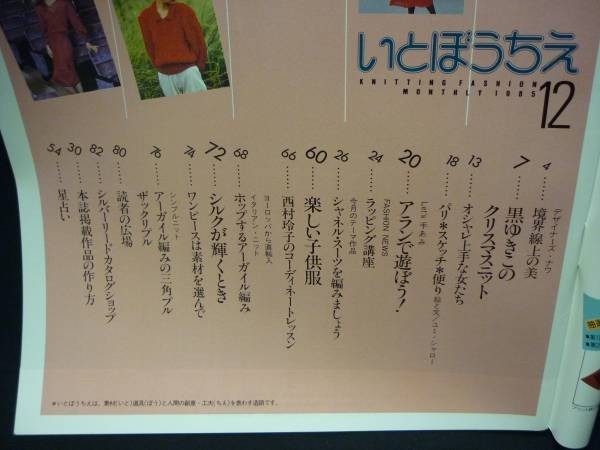 いとぼうちえ
KNITTING FASHION
MONTHLY 1985
12
4 デザイナーズ・ナウ
境界線上の美
7 黒ゆきこの
クリスマスニット
13 オシャレ上手な女たち
18 パリ*スケッチ*便り 絵と文/ユミ・シャロー
Let's 手あみ
20 アランで遊ぼう!
FASHION NEWS
24 ラッピング講座
今月のテーマ作品
26 シャネル・スーツを編みましょう
60 楽しい子供服
66 西村玲子のコーディネートレッスン
ヨーロッパから直輸入
イタリアン・ニット
68 ホップするアーガイル編み
72 シルクが輝くとき
74 ワンピースは素材を選んで
シンプルニット
76 アーガイル編みの三角プル
ザックリプル
80 読者の広場
82 シルバーリードカタログショップ
30 本誌掲載作品の作り方
54 星占い
*いとぼうちえは、素材(いと)道具(ぼう)と人間の創意・工夫(ちえ)を表わす造語です。